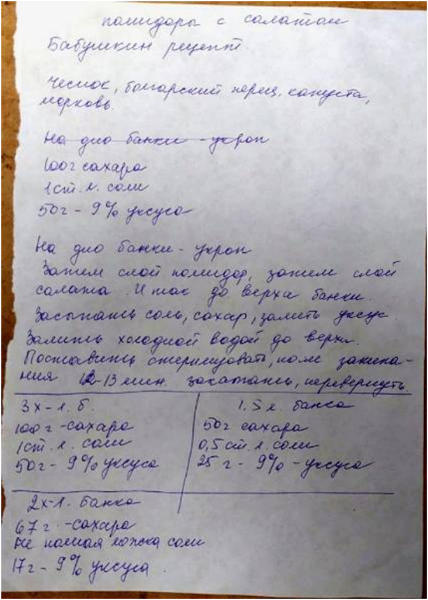 помидоры с салатом
Бабушкин рецепт.
Чеснок, болгарский перец, капуста,
морковь.
На дно банки - укроп
100 г сахара
1 ст. л. соли
50 г - 9% уксуса
На дно банки - укроп
Затем слой помидор, затем слой
салата. И так до верха банки.
Засыпать соль, сахар, залить уксус.
Залить холодной водой до верха.
Поставить стерилизовать, после закипа-
ния 12-13 мин. закатать, перевернуть
3х-л. б.
100 г - сахара
1 ст. л. соли
50 г - 9% уксуса
1.5 л. банка
50 г сахара
0,5 ст. л. соли
25 г - 9% - уксуса
2х-л. банка
67 г. - сахара
Не полная ложка соли
17 г - 9% уксуса.